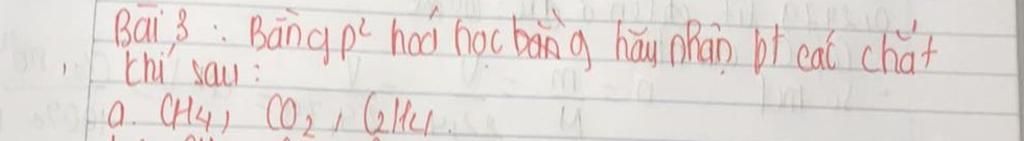 Bài 3 : Bằng p² hoá học bằng hãy phân bt các chất
khí sau :
a. CH4, CO2, C2H4.